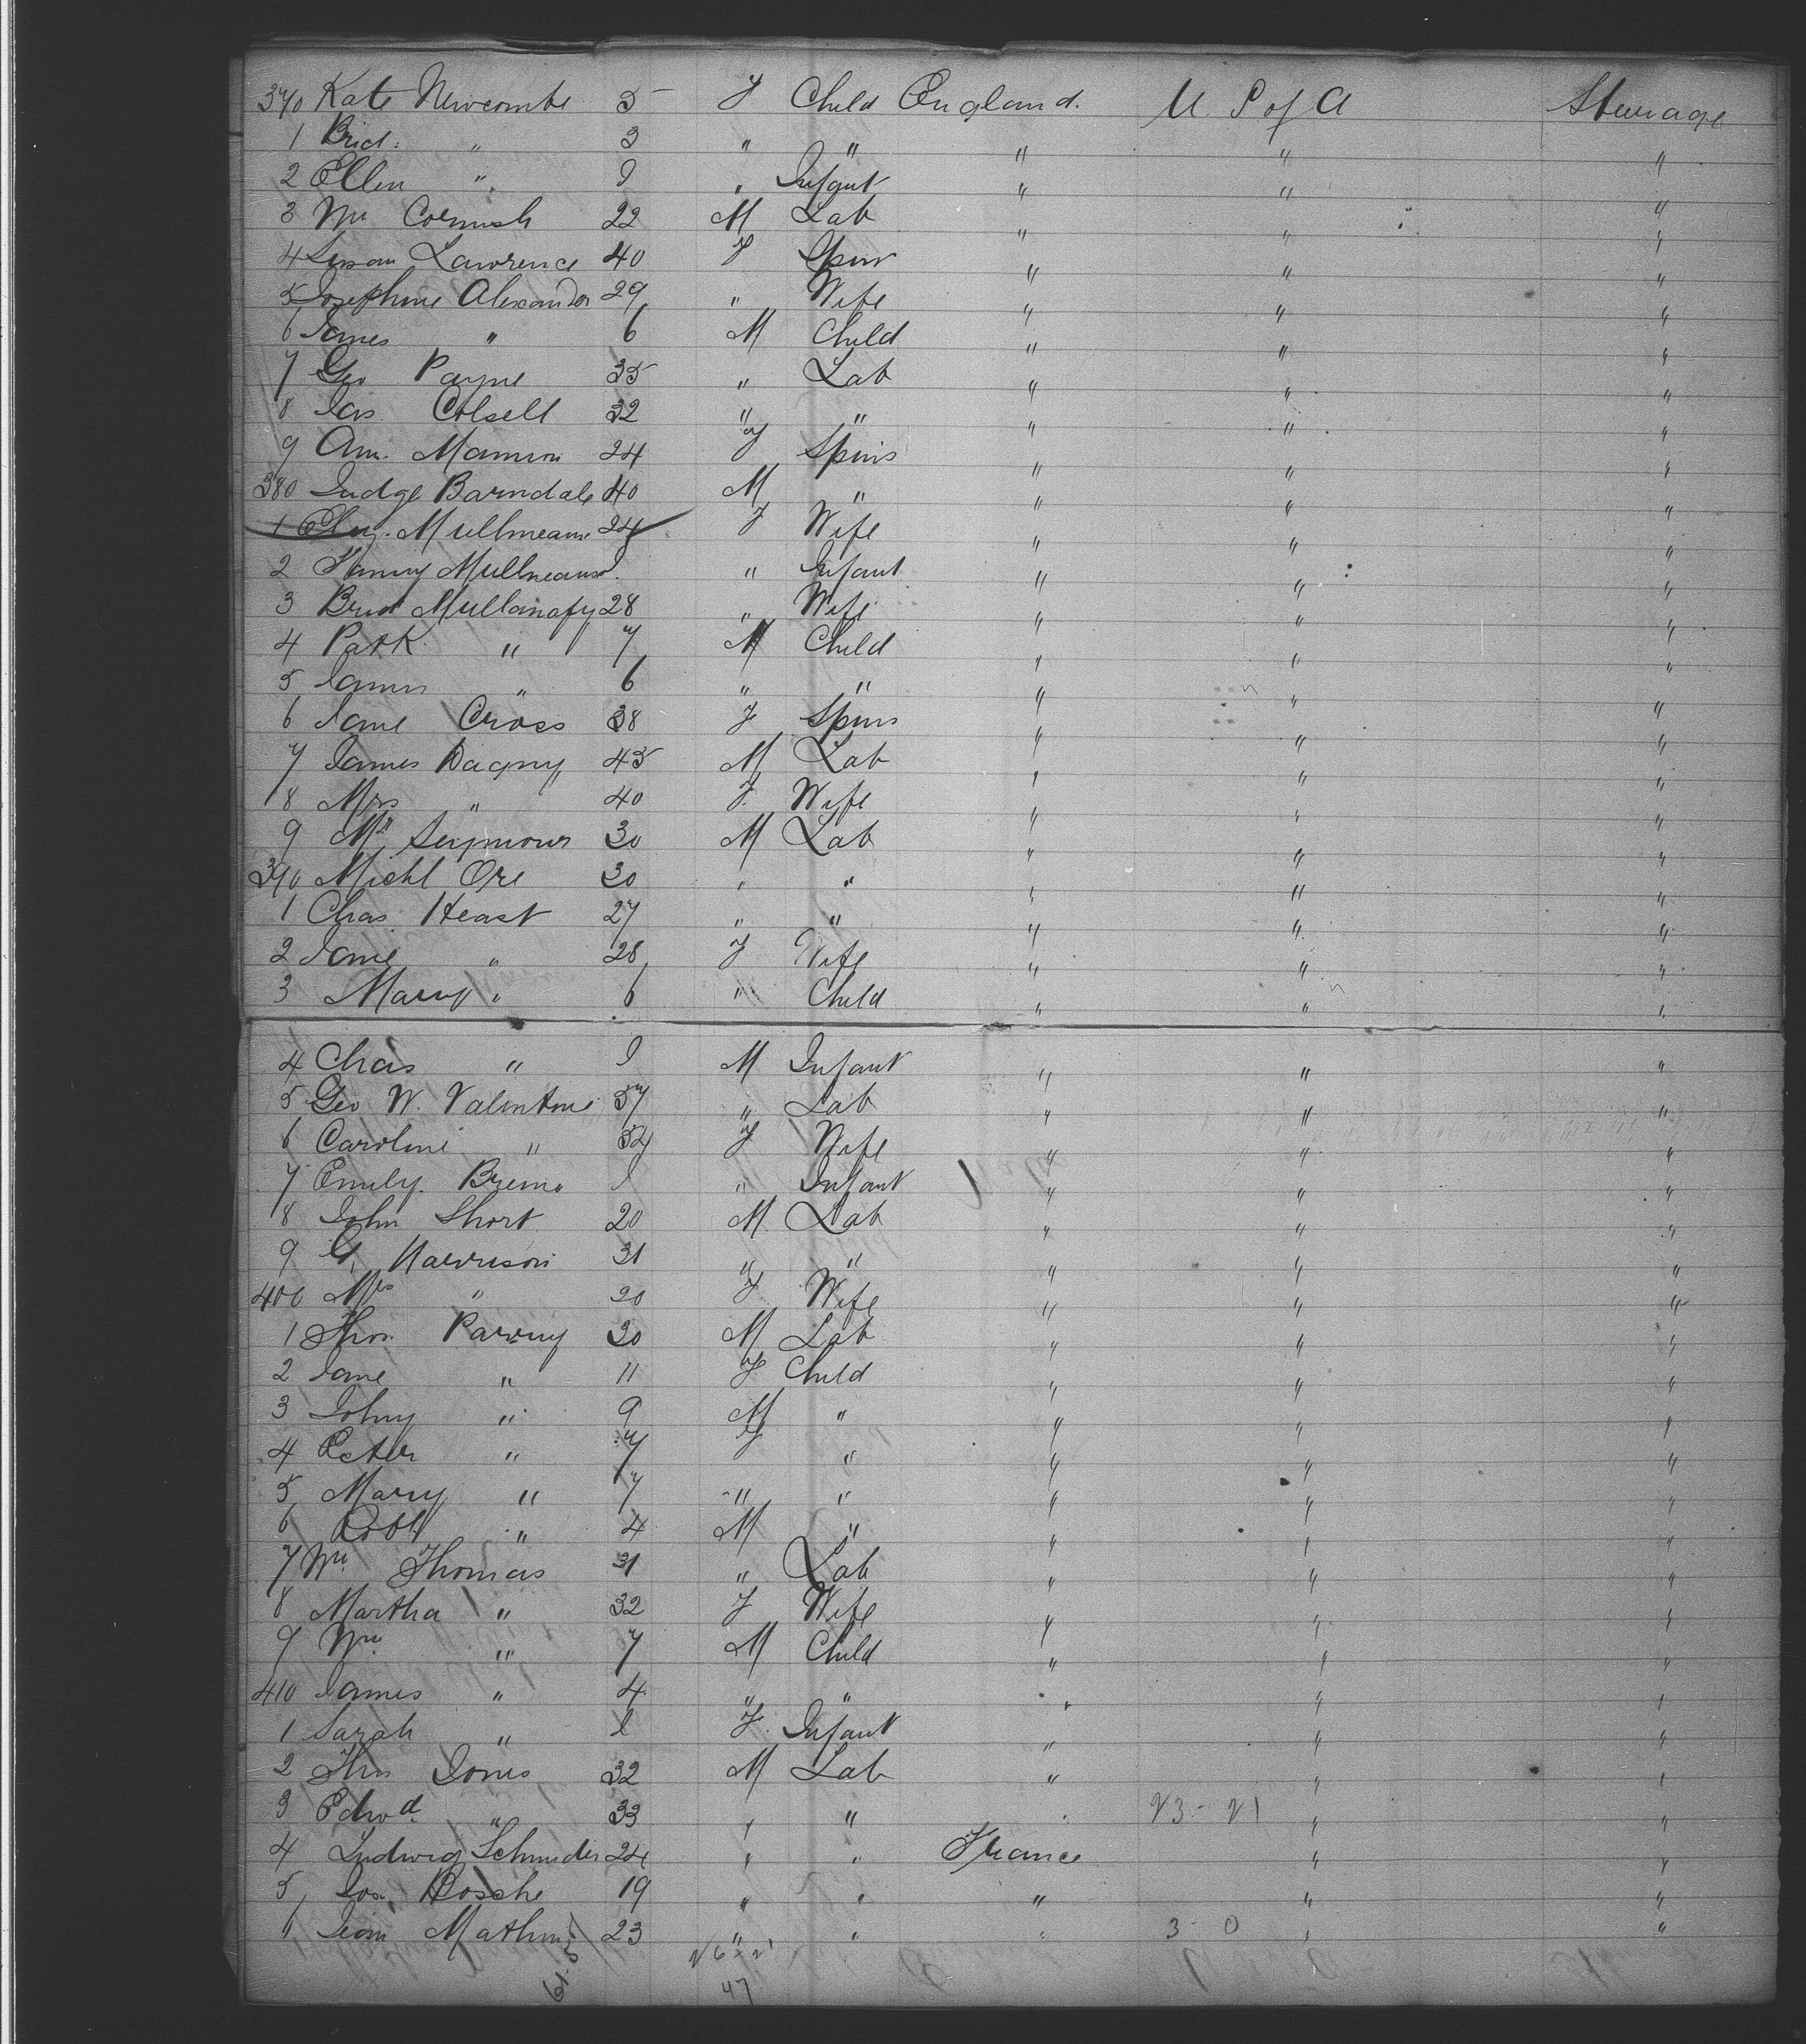 370 Kate Newcombe 5 F Child England. U. S of A Steerage
1 Brid: " 3 " " " " "
2 Ellen " I " Infant " " "
3 Wm Cornish 22 M Lab " " "
4 Susan Lawrence 40 F Spin " " "
5 Josephine Alexander 29 " Wife " " "
6 James " 6 M Child " " "
7 Geo Payne 35 " Lab " " "
8 Jas. Colsell 32 " " " " "
9 Ann. Mannion 24 F Spins " " "
380 Judge Barndale 40 M " " " "
1 Mullmeane 24 F Wife " " "
2 Mullneane I. " Infant " " "
3 Brid Mullanafy 28 " Wife " " "
4 Patk " 7 M Child " " "
5 James " 6 " " " " "
6 Jane Cross 38 F Spins " " "
7 James Dagny 45 M Lab " " "
8 Mrs " 40 F. Wife " " "
9 Mr Seymour 30 M Lab " " "
390 Michl Ore 30 " " " " "
1 Chas Heast 27 " " " " "
2 Jane " 28 F Wife " " "
3 Mary " 6 " Child " " "
4 Chas " I M Infant " " "
5 Geo W. Valentine 57 " Lab " " "
6 Caroline " 54 F Wife " " "
7 Emily. I " Infant " " "
8 John Short 20 M Lab " " "
9 G. Harrison 31 " " " " "
400 Mrs " 20 F Wife " " "
1 Thos. 30 M Lab " " "
2 Jane " 11 F Child " " "
3 Johny " 9 M " " " "
4 Peter " 7 F " " " "
5 Mary " 7 " " " " "
6 Robt " 4 M " " " "
7 Wm Thomas 31 " Lab " " "
8 Martha " 32 F Wife " " "
9 Wm " 7 M Child " " "
410 James " 4 " " " " "
1 Sarah " I F. Infant " " "
2 Thos Jones 32 M Lab " " "
3 Edwd. " 33 " " " 23 - 21 " "
4 Ludwig Schnider 24 " " France " "
5 Jos. Bosche 19 " " " " "
6 23 " " " 3 - 0 " "
61-5
47